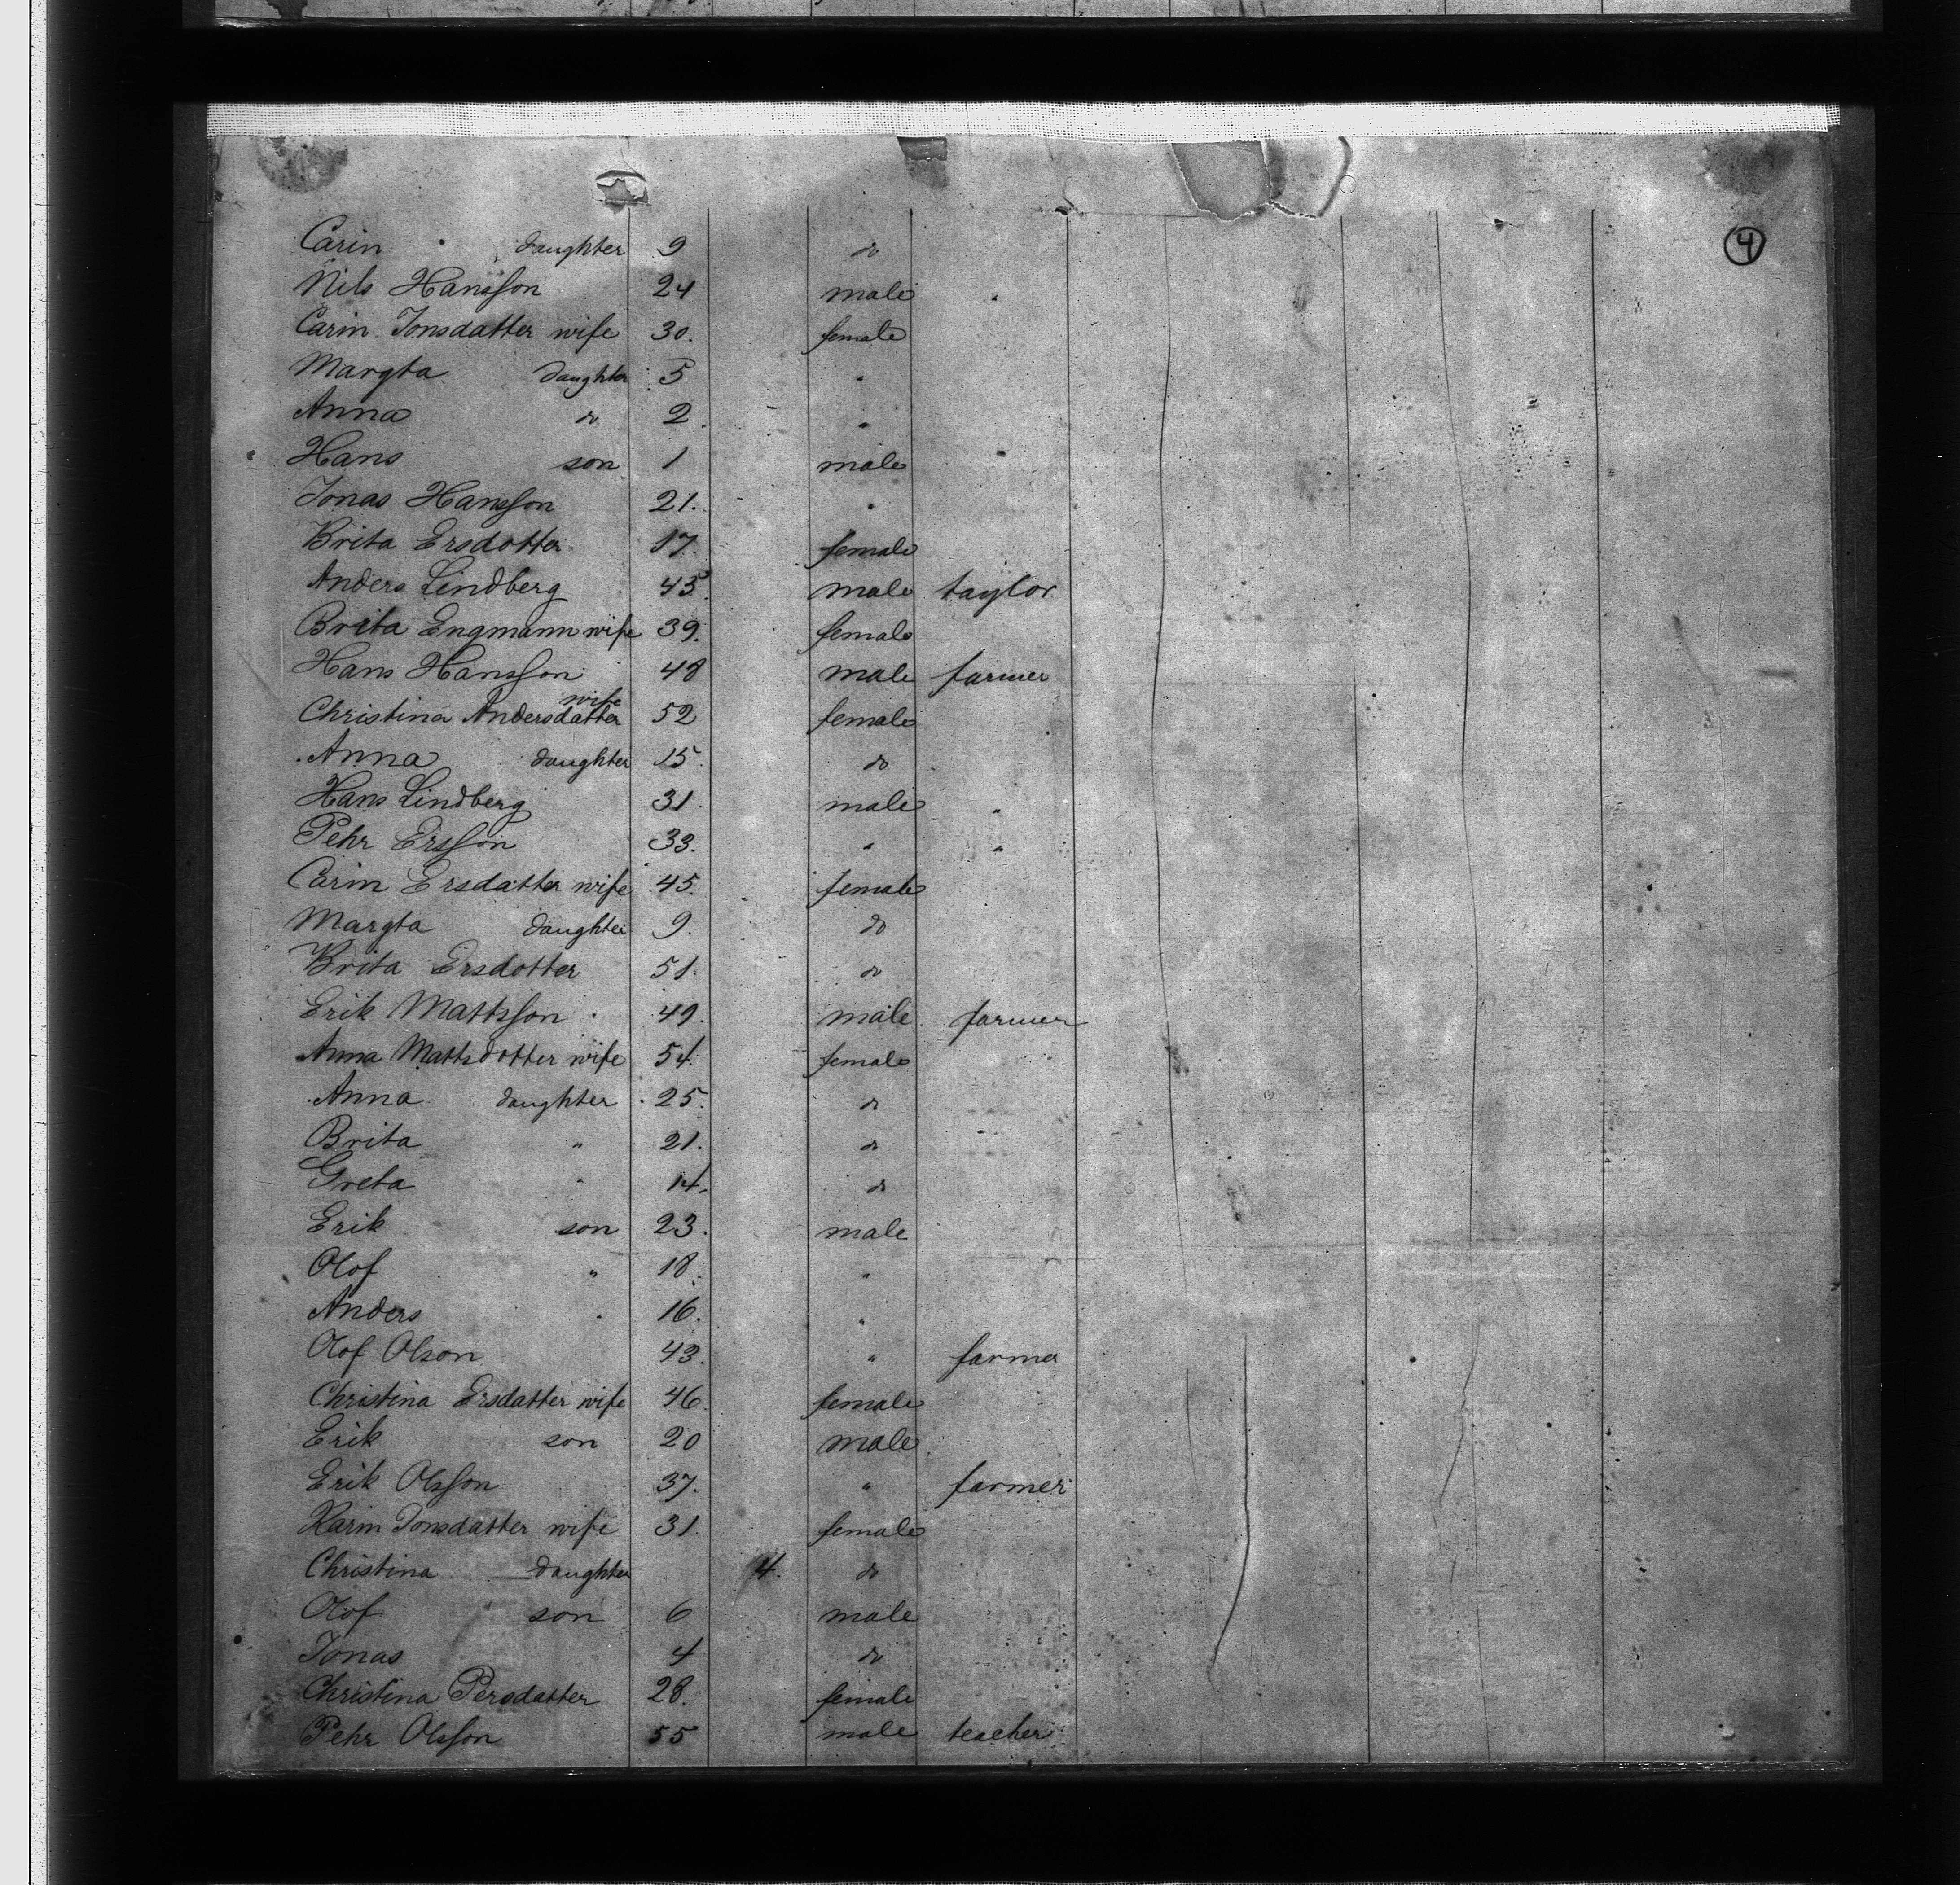 4
Carin daughter 9 do
Nils Hansson 24 male "
Carin Jonsdatter wife 30. female
Margta daughter 5 "
Anna do 2 "
Hans son 1 male
Jonas Hansson 21. "
Brita Ersdotter 17. female
Anders Lindberg 45. male taylor
Brita Engmann wife 39. female
Hans Hansson 48 male farmer
Christina Andersdatter wife 52 female
Anna daughter 15. do
Hans Lindberg 31. male "
Pehr Ersson 33. " "
Carin Ersdatter wife 45. female
Margta daughter 9. do
Brita Ersdotter 51. do
Erik Mattsson 49. male farmer
Anna Mattsdotter wife 54. female
Anna daughter 25. do
Brita " 21. do
Greta " 14. do
Erik son 23. male
Olof " 18. "
Anders " 16. "
Olof Olson 43. " farmer
Christina Ersdatter wife 46. female
Erik son 20 male
Erik Olsson 37. " farmer
Karin Jonsdatter wife 31. female
Christina daughter 4. do
Olof son 6 male
Jonas 4 do
Christina Persdatter 28. female
Pehr Olsson 55 male teacher